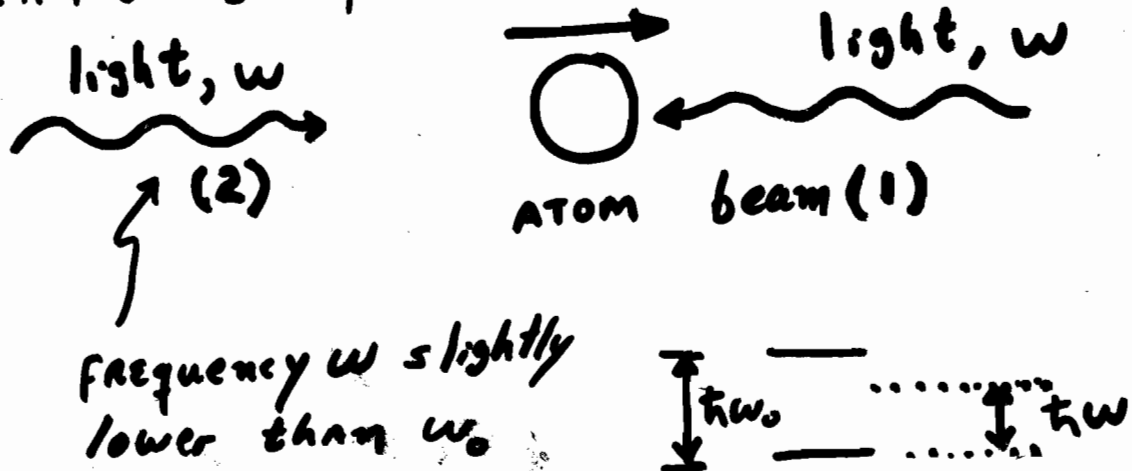 light, w
light, w
(2)
ATOM
beam (1)
frequency w slightly
lower than w₀
ħw₀
ħw